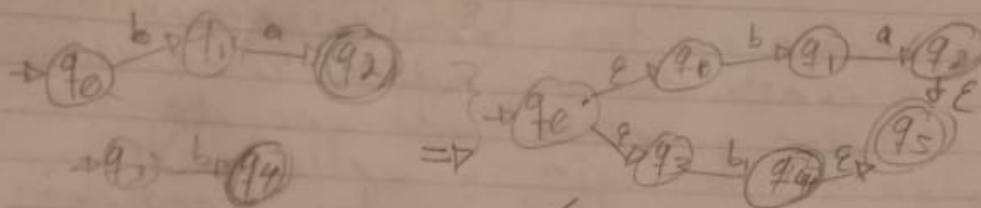 q0 b q1 a q2
q3 b q4
⇒
qe ε q0 b q1 a q2 ε
ε q3 b q4 ε q5